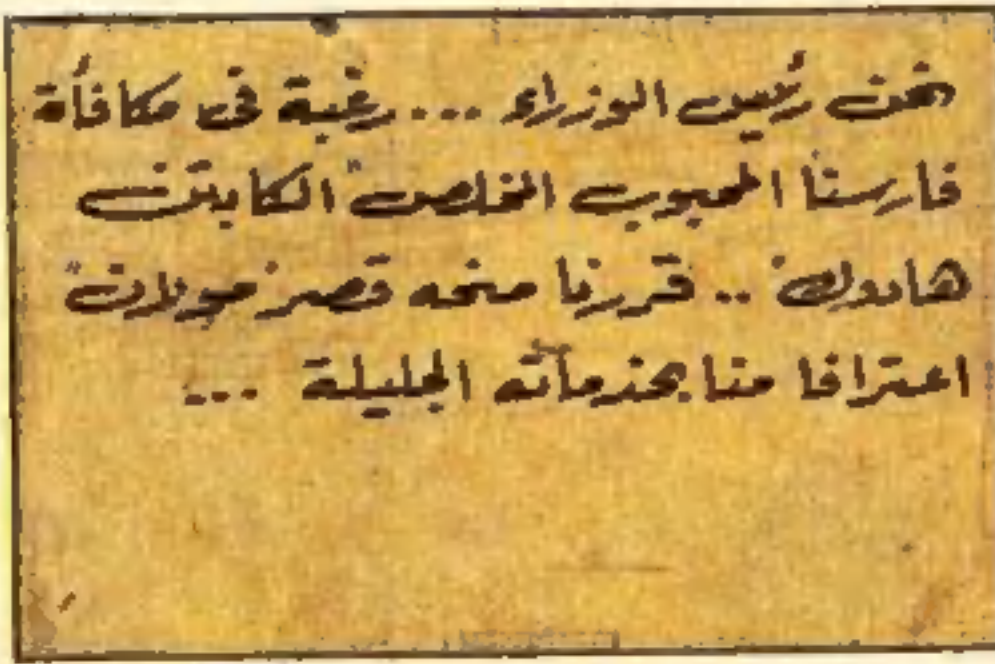 نحن رئيس الوزراء ... رغبة فى مكافأة
فارسنا المحبوب المخلص "الكابتن
هادوك" .. قررنا منحه قصر مولان"
اعترافا منا بخدماته الجليلة ...